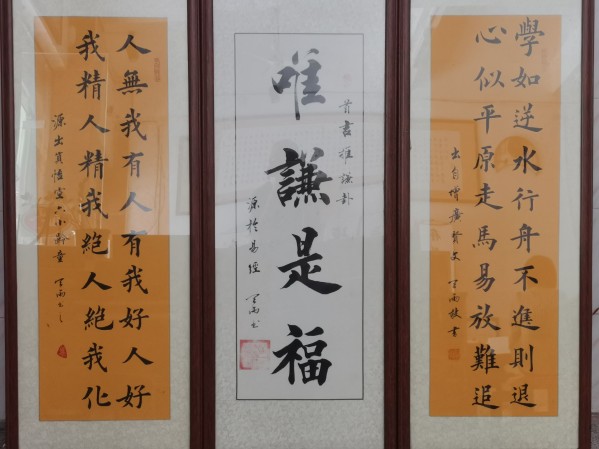 學如逆水行舟不進則退
心似平原走馬易放難追
出自增廣賢文 雨敬書
唯謙是福
書唯謙卦
源於易經 雨書
人無我有人有我好人好
我精人精我絕人絕我化
源出真悟空六小齡童 雨書